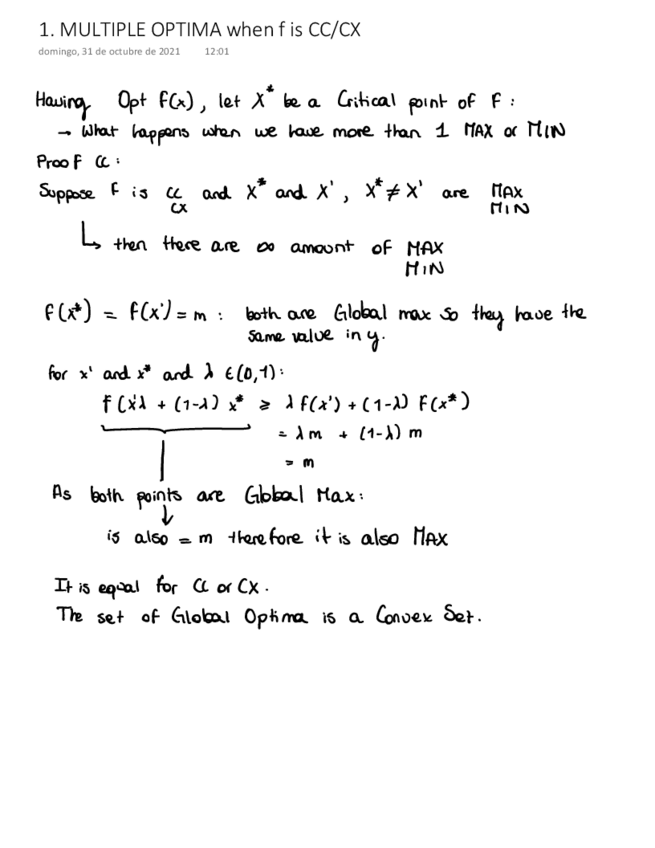 1. MULTIPLE OPTIMA when f is CC/CX
domingo, 31 de octubre de 2021 12:01
Having Opt f(x), let X* be a Critical point of F :
→ What happens when we have more than 1 MAX or MIN
Proof CC :
Suppose f is CC and X* and X', X* ≠ X' are MAX
CX MIN
↳ then there are ∞ amount of MAX
MIN
f(x*) = f(x') = m : both are Global max so they have the
same value in y.
for x' and x* and λ ∈ (0,1):
f(x'λ + (1-λ) x* ≥ λ f(x') + (1-λ) F(x*)
= λm + (1-λ) m
= m
As both points are Global Max:
↓
is also = m therefore it is also MAX
It is equal for CC or CX.
The set of Global Optima is a Convex Set.